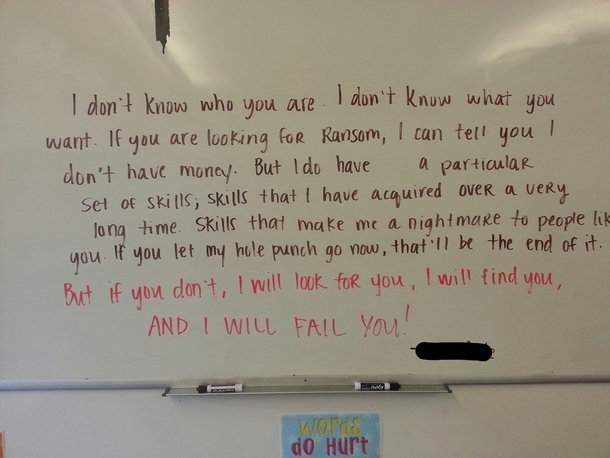 I don't know who you are. I don't know what you
want. If you are looking for Ransom, I can tell you I
don't have money. But I do have a particular
set of skills; skills that I have acquired over a very
long time. Skills that make me a nightmare to people lik
you. If you let my hole punch go now, that'll be the end of it.
But if you don't, I will look for you, I will find you,
AND I WILL FAIL YOU!
words
do Hurt